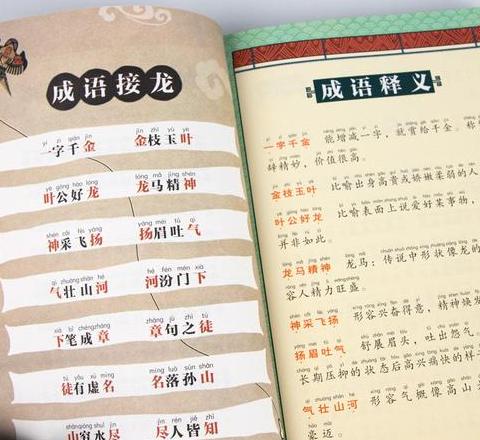 成语接龙
yí zì qiān jīn jīn zhī yù yè
一字千金 金枝玉叶
yè gōng hào lóng lóng mǎ jīng shén
叶公好龙 龙马精神
shén cǎi fēi yáng yáng méi tǔ qì
神采飞扬 扬眉吐气
qì zhuàng shān hé hé fén mén xià
气壮山河 河汾门下
xià bǐ chéng zhāng zhāng jù zhī tú
下笔成章 章句之徒
tú yǒu xū míng míng luò sūn shān
徒有虚名 名落孙山
shān qióng shuǐ jìn jìn rén jiē zhī
山穷水尽 尽人皆知
成语释义
一字千金 能增减一字,就赏给千金。称
辞精妙,价值很高。
金枝玉叶 比喻出身高贵或娇嫩柔弱的人
叶公好龙 比喻表面上说爱好某事物,
并非如此。
龙马精神 龙马:传说中形状像龙的
容人精力旺盛。
神采飞扬 形容兴奋得意,精神焕发
扬眉吐气 舒展眉头,吐出怨气
长期压抑的状态后高兴痛快的样
气壮山河 形容气概像高山
豪迈。